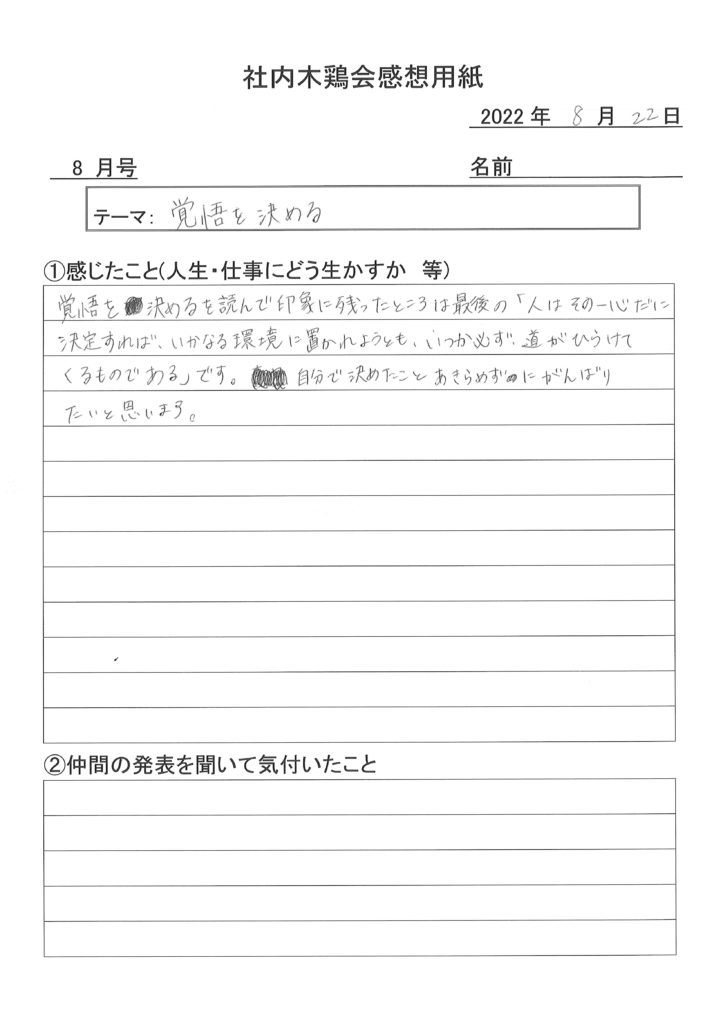 社内木鶏会感想用紙
2022年 8月 22日
8 月号
名前
テーマ: 覚悟を決める
①感じたこと(人生・仕事にどう生かすか 等)
覚悟を決めるを読んで印象に残ったところは最後の「人はその一心だに
決定すれば、いかなる環境に置かれようとも、いつか必ず、道がひらけて
くるものである」です。 自分で決めたことあきらめずにがんばり
たいと思います。
②仲間の発表を聞いて気付いたこと